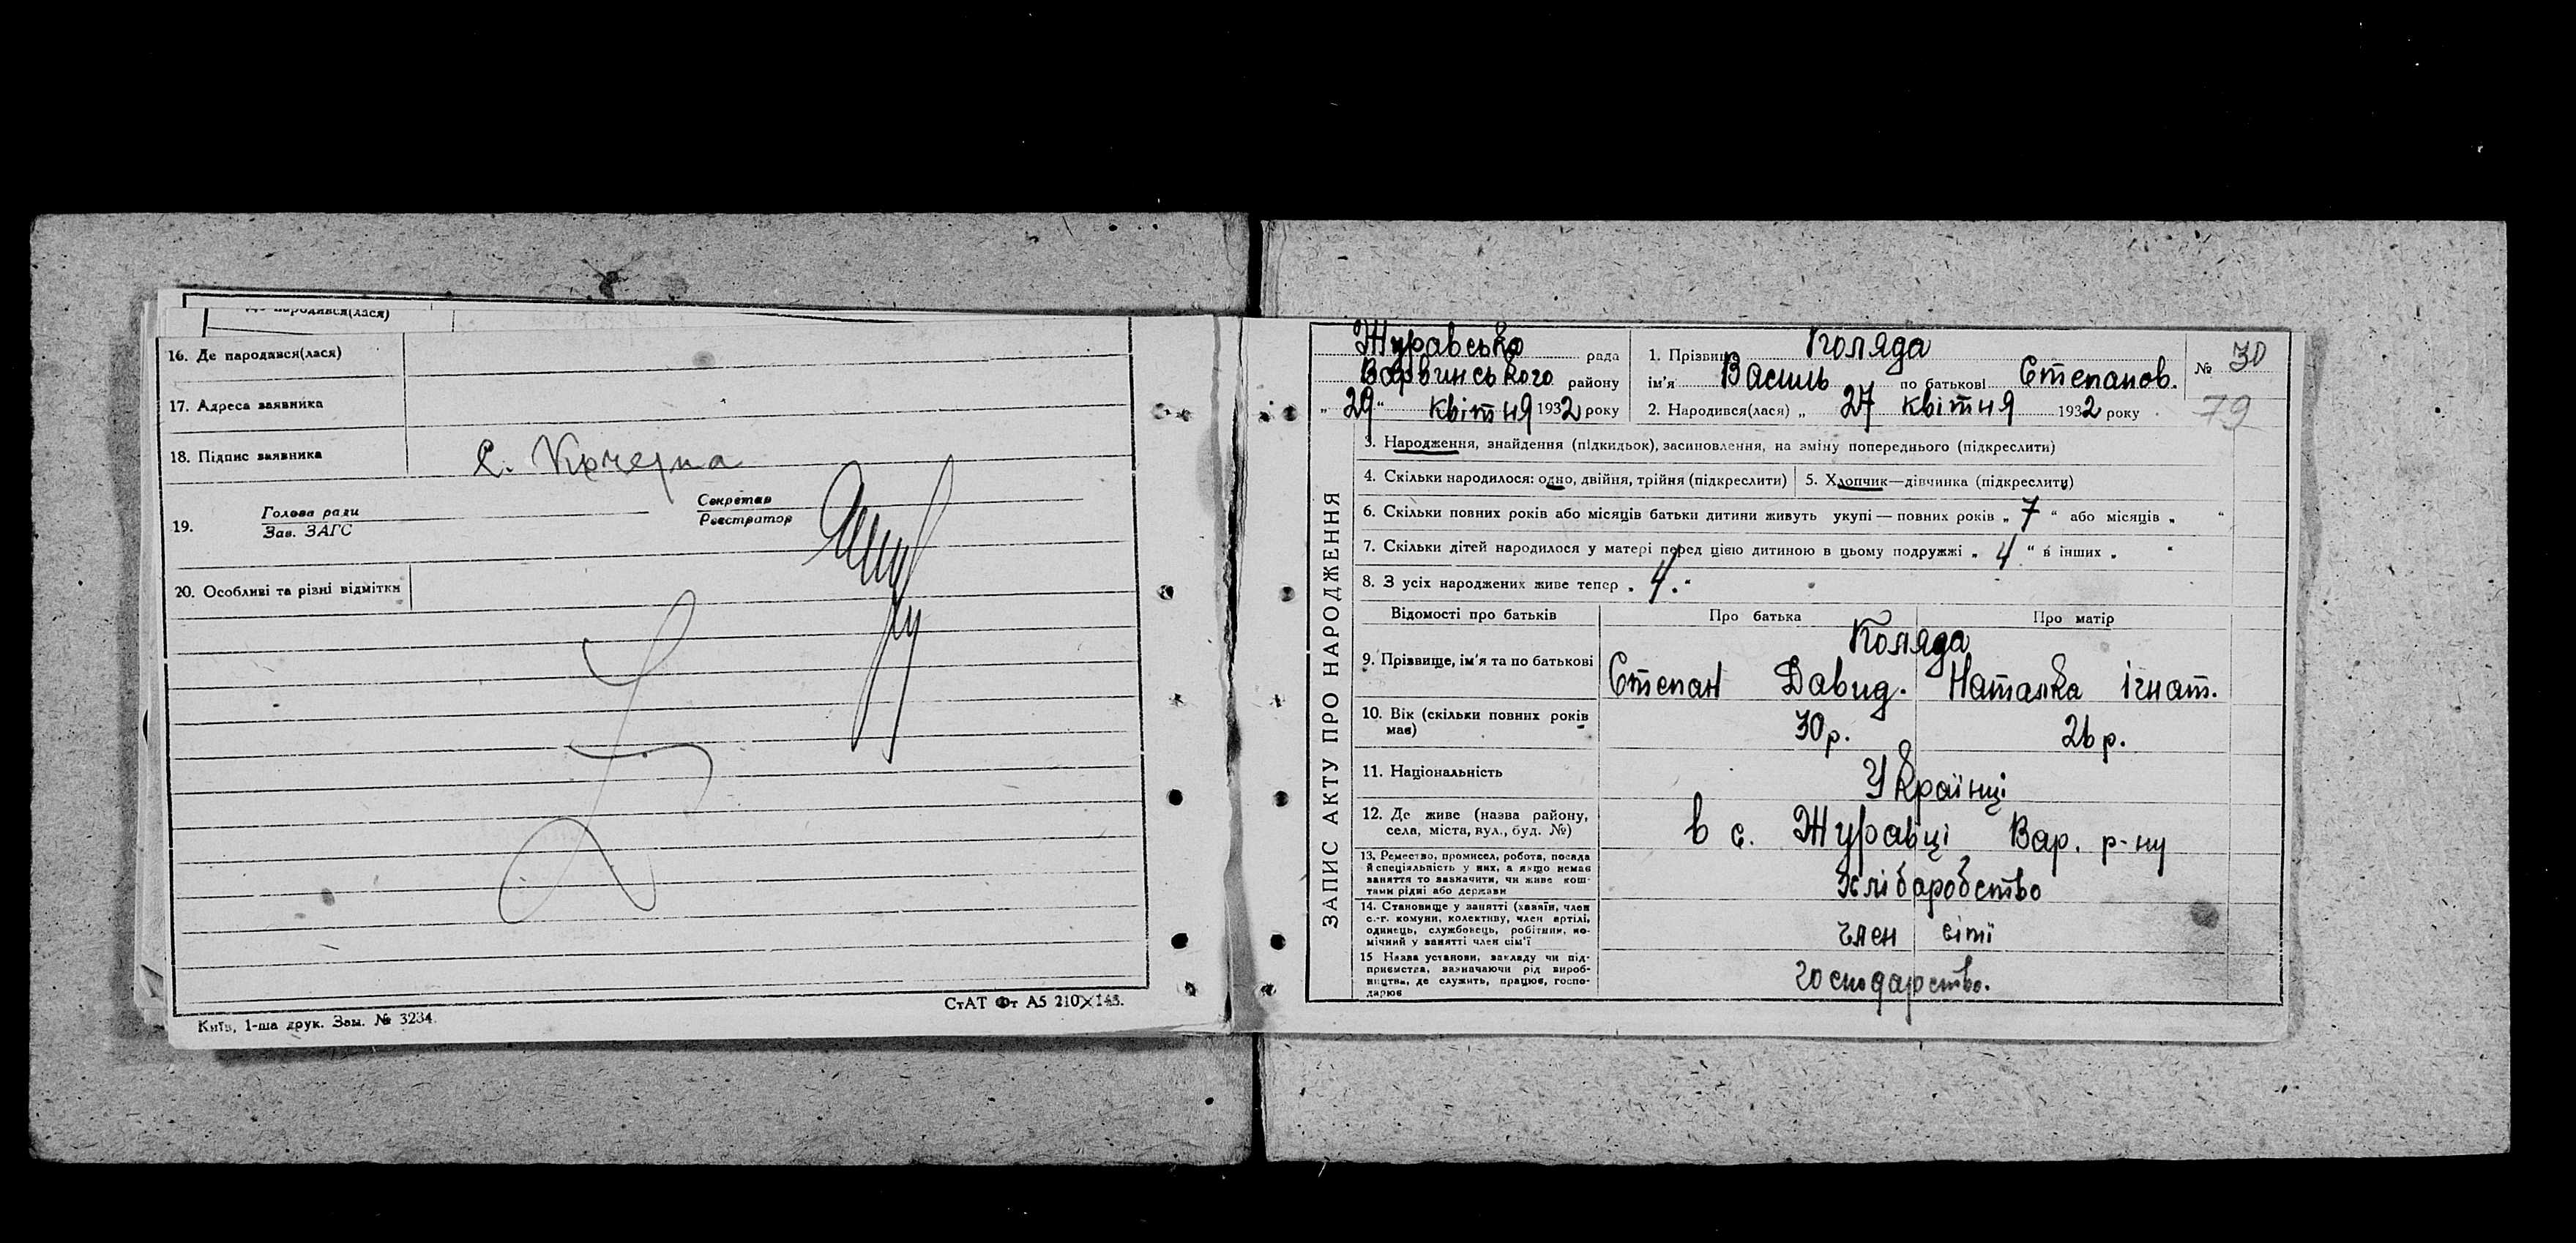 народився(лася)
16. Де народився(лася)
17. Адреса заявника
18. Підпис заявника
С. Кочерга
19. Голова ради
Зав. ЗАГС
Секретар
Реєстратор
20. Особливі та різні відмітки
СтАТ Фт А5 210×143.
Київ, 1-ша друк. Зам. № 3234.
ЗАПИС АКТУ ПРО НАРОДЖЕННЯ
Журавсько рада
Варвинського району
„ 29 “ квітня 1932 року
1. Прізвище Коляда
ім'я Василь по батькові Степанов.
2. Народився(лася) „ 27 квітня 1932 року
№ 30
79
3. Народження, знайдення (підкидьок), засиновлення, на зміну попереднього (підкреслити)
4. Скільки народилося: одно, двійня, трійня (підкреслити)
5. Хлопчик—дівчинка (підкреслити)
6. Скільки повних років або місяців батьки дитини живуть укупі — повних років „ 7 “ або місяців „ “
7. Скільки дітей народилося у матері перед цією дитиною в цьому подружжі „ 4 “ в інших „ “
8. З усіх народжених живе тепер „ 4. “
Відомості про батьків
Про батька
Про матір
9. Прізвище, ім'я та по батькові
Коляда
Степан Давид. Наталка Ігнат.
10. Вік (скільки повних років має)
30 р. 26 р.
11. Національність
Українці
12. Де живе (назва району,
села, міста, вул., буд. №)
в с. Журавці Вар. р-ну
13. Ремество, промисел, робота, посада
й спеціяльність у них, а якщо немає
заняття то зазначити, чи живе кош-
тами рідні або держави
Хлібаробство
14. Становище у занятті (хазяїн, член
с.-г. комуни, колективу, член артілі,
одинець, службовець, робітник, по-
мічний у занятті член сім'ї
член сімї
15 Назва установи, закладу чи під-
приємства, зазначаючи рід вироб-
ництва, де служить, працює, госпо-
дарює
Господарство.